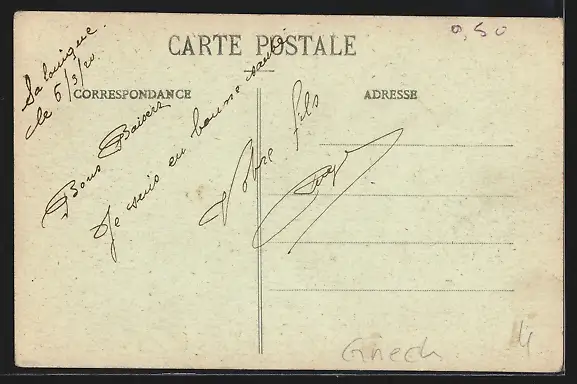 Salonique.
le 6/3/20.
0,50
CARTE POSTALE
CORRESPONDANCE
ADRESSE
Bons Baisers
Je suis en bonne santé
Votre fils
Griech
4